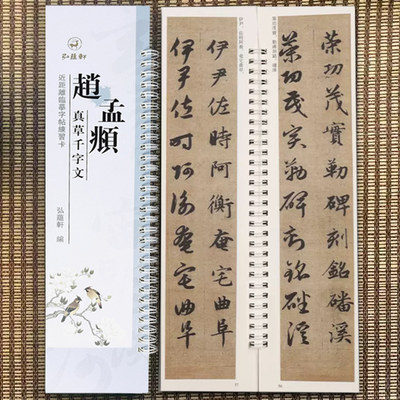 弘蘊軒
近距離臨摹字帖練習卡
趙孟頫
真草千字文
弘蘊軒 編
策功茂實勒碑刻銘磻溪
策功茂實勒碑刻銘磻溪
伊尹佐時阿衡奄宅曲阜
伊尹佐時阿衡奄宅曲阜